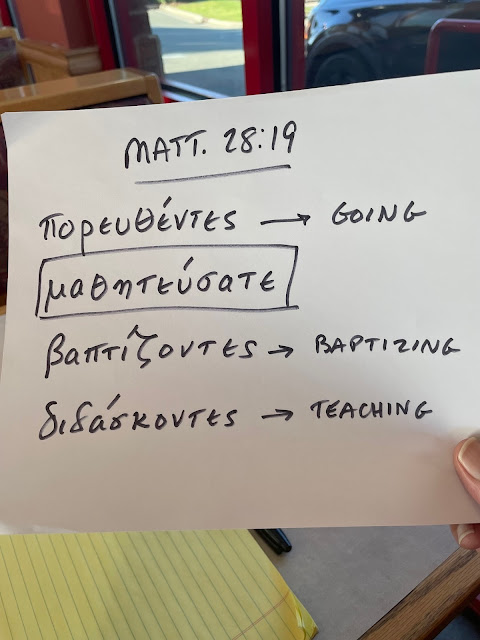 MATT. 28:19
πορευθέντες → GOING
μαθητεύσατε
βαπτίζοντες → BAPTIZING
διδάσκοντες → TEACHING